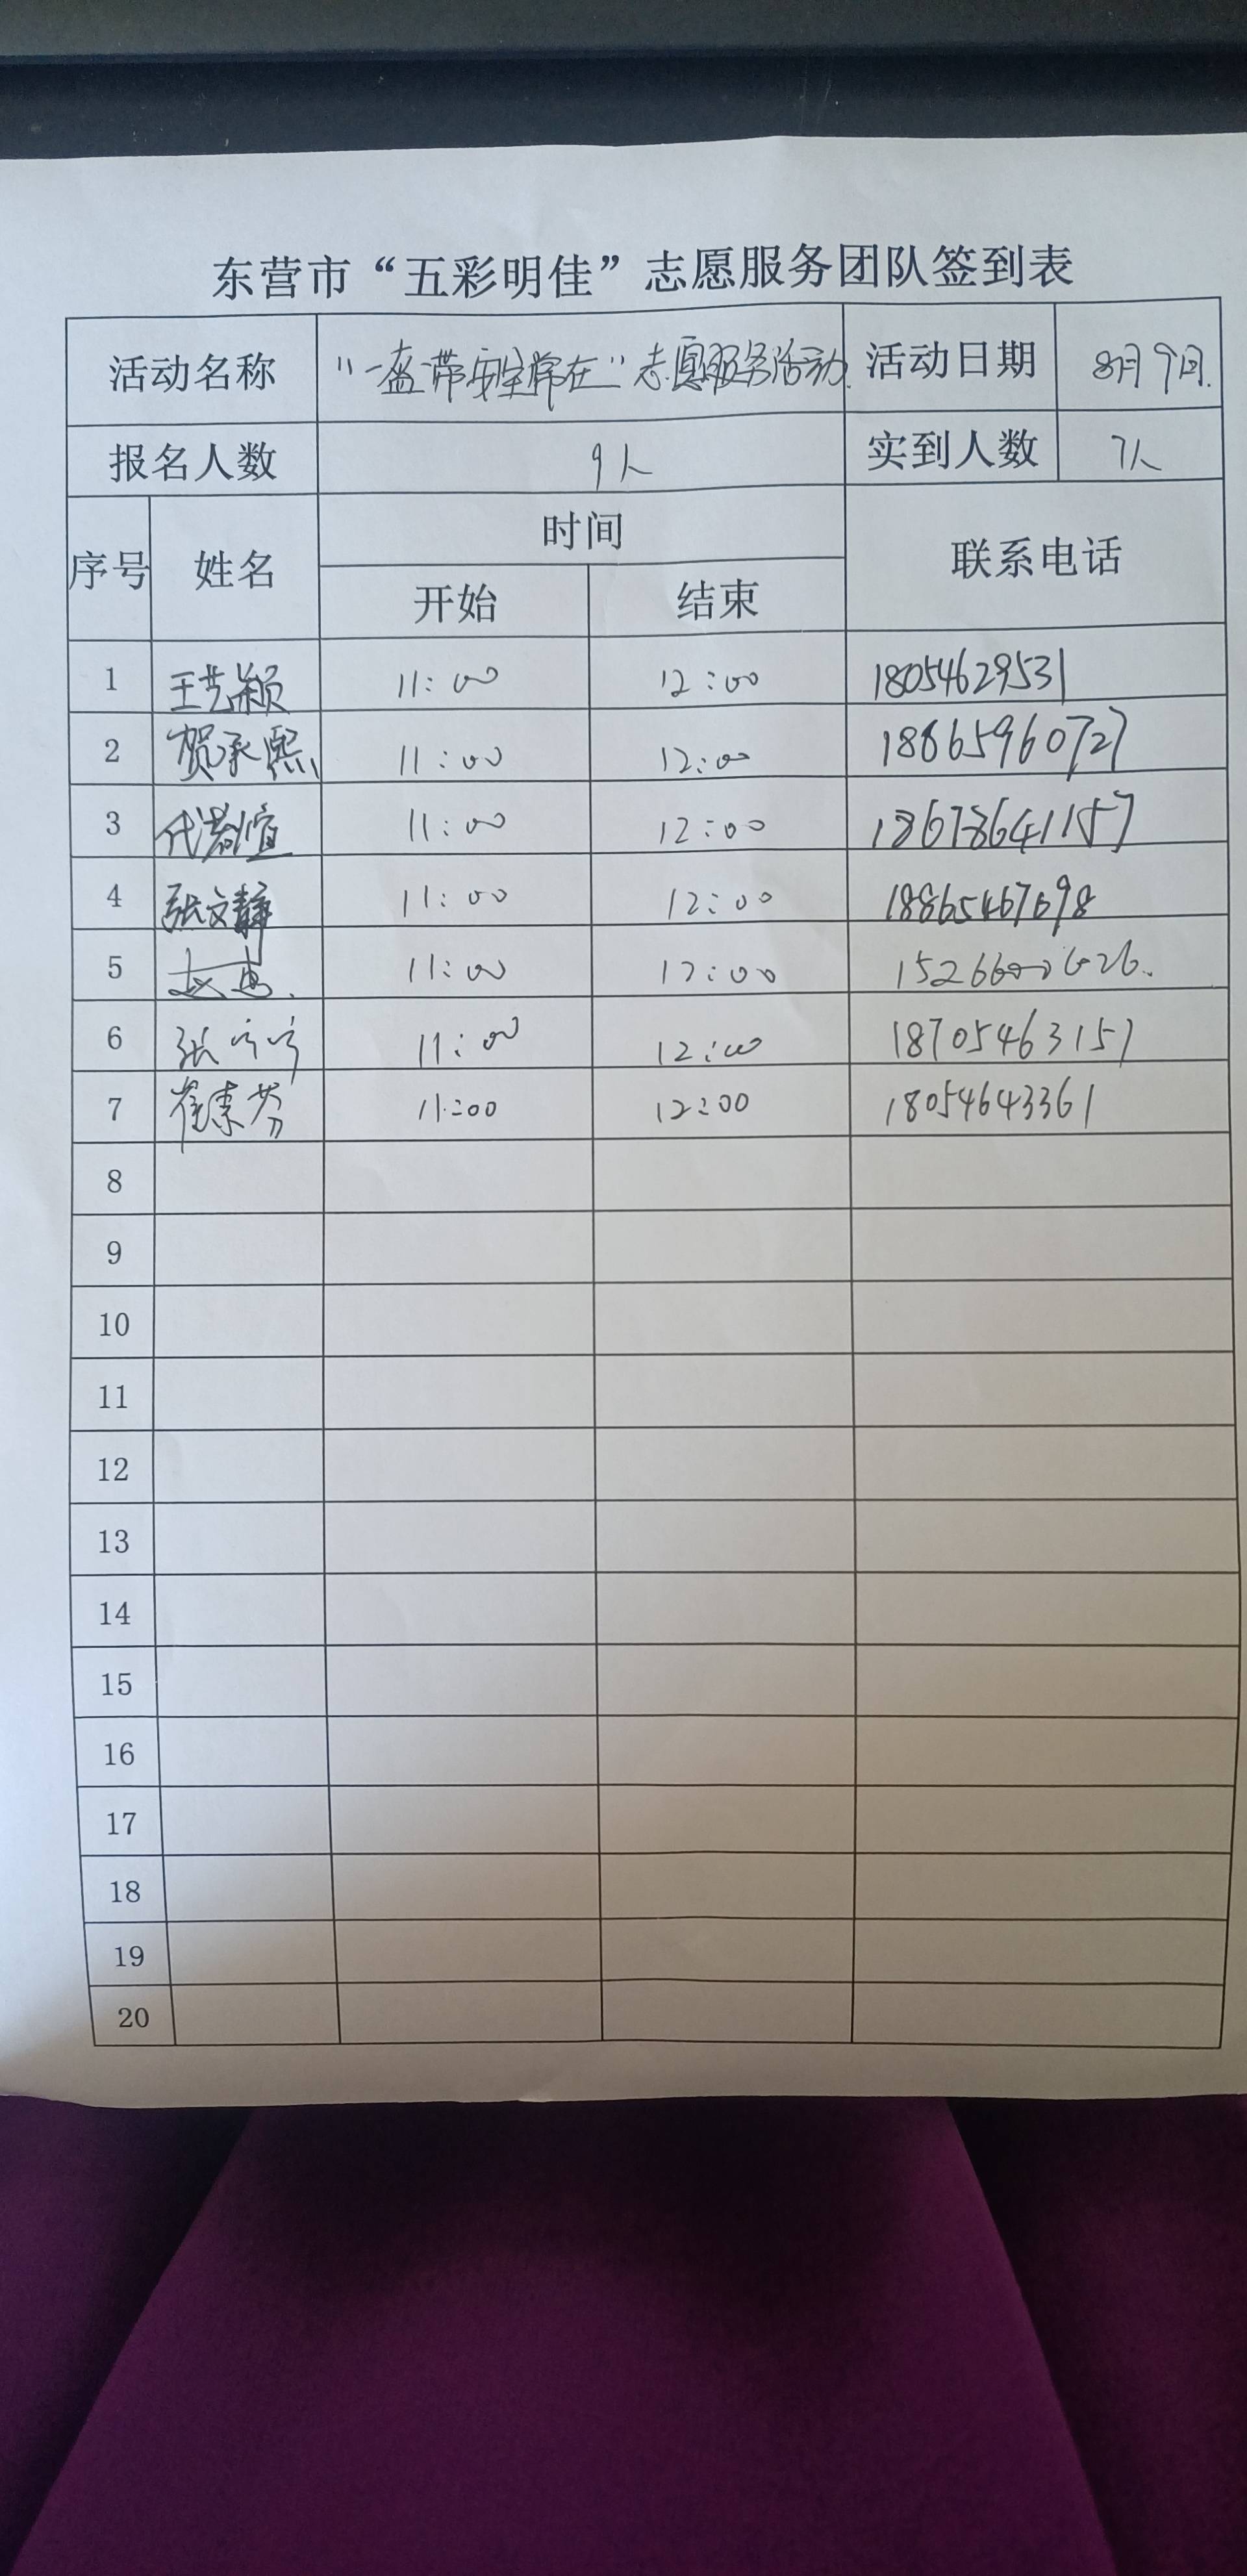 东营市“五彩明佳”志愿服务团队签到表
活动名称 “一盔一带安全常在”志愿服务活动 活动日期 8月9日.
报名人数 9人 实到人数 7人
序号 姓名 时间 联系电话
开始 结束
1 王艺颖 11:00 12:00 18054629531
2 贺承熙 11:00 12:00 18865960727
3 11:00 12:00 18678641157
4 张文静 11:00 12:00 18865467698
5 11:00 12:00
6 张 11:00 12:00 18705463157
7 崔素芳 11:00 12:00 18054643361
8
9
10
11
12
13
14
15
16
17
18
19
20